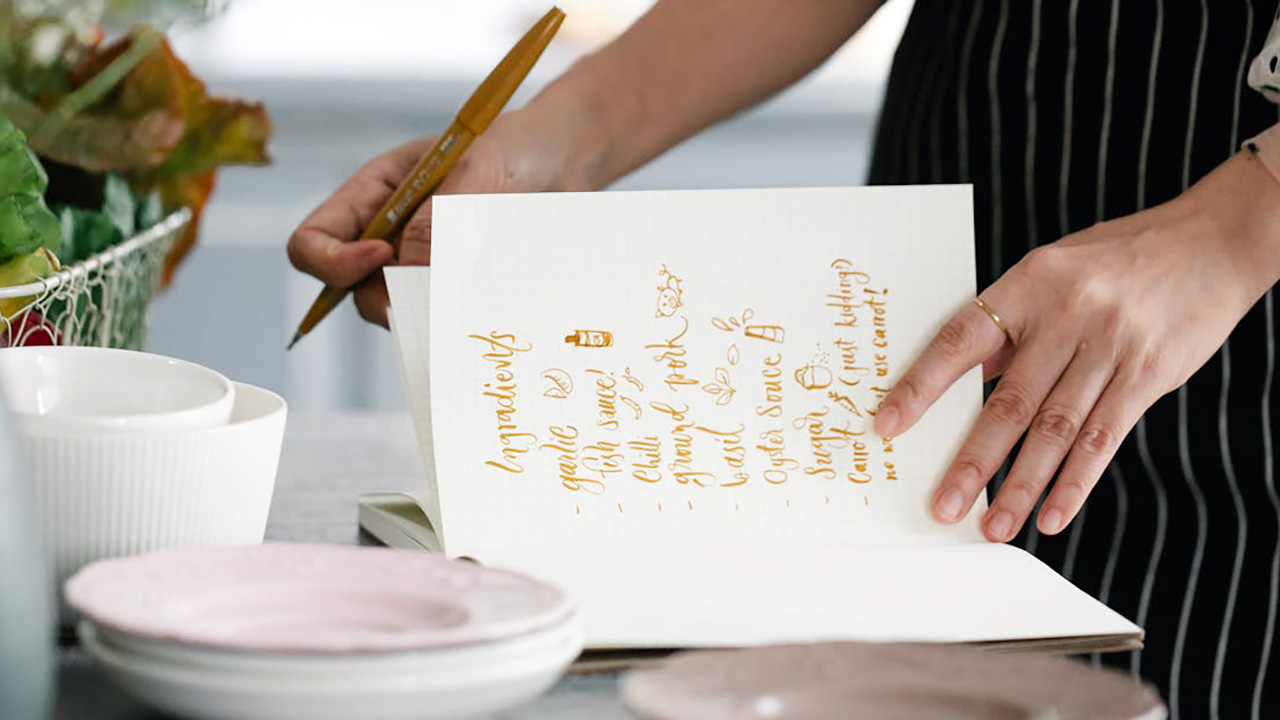 Ingradients
- garlic
- fish sauce!
- Chilli
- ground pork
- basil
- Oyster Souce
- Sugar
- Carrot (just kidding!)
no use carrot!